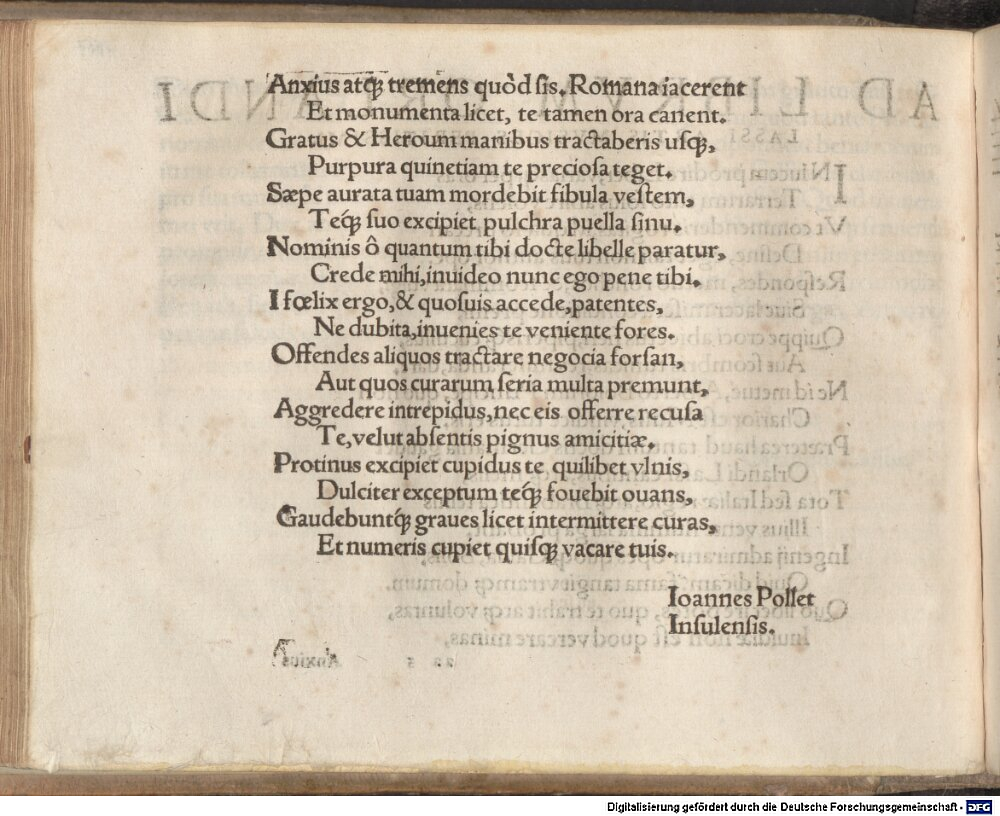 Anxius atq; tremens quòd sis. Romana iacerent
Et monumenta licet, te tamen ora canent.
Gratus & Heroum manibus tractaberis usq;,
Purpura quinetiam te preciosa teget.
Sæpe aurata tuam mordebit fibula vestem,
Teq; suo excipiet pulchra puella sinu.
Nominis ô quantum tibi docte libelle paratur,
Crede mihi, inuideo nunc ego pene tibi.
I fœlix ergo, & quosuis accede, patentes,
Ne dubita, inuenies te veniente fores.
Offendes aliquos tractare negocia forsan,
Aut quos curarum seria multa premunt,
Aggredere intrepidus, nec eis offerre recusa
Te, velut absentis pignus amicitiæ.
Protinus excipiet cupidus te quilibet vlnis,
Dulciter exceptum teq; fouebit ouans,
Gaudebuntq; graues licet intermittere curas,
Et numeris cupiet quisq; vacare tuis.
Ioannes Pollet
Insulensis.
Digitalisierung gefördert durch die Deutsche Forschungsgemeinschaft - DFG